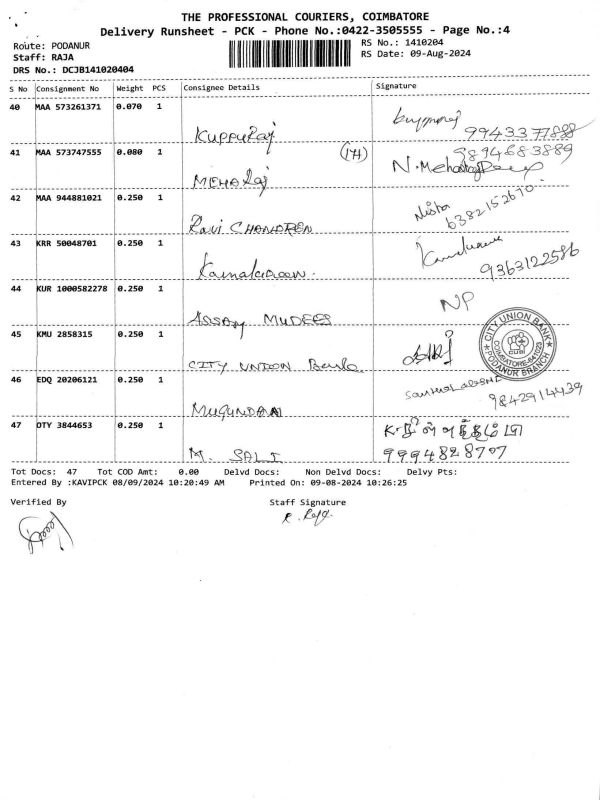 THE PROFESSIONAL COURIERS, COIMBATORE
Delivery Runsheet - PCK - Phone No.:0422-3505555 - Page No.:4
Route: PODANUR
RS No.: 1410204
Staff: RAJA
RS Date: 09-Aug-2024
DRS No.: DCJB141020404
S No Consignment No Weight PCS Consignee Details Signature
40 MAA 573261371 0.070 1
KUPPURaj 9943377888
41 MAA 573747555 0.080 1 (174) 9894683889
MEHARaj N. Mehar
42 MAA 944881021 0.250 1 Nisha
Ravi CHANDREN 6382152670
43 KRR 50048701 0.250 1
9363122586
44 KUR 1000582278 0.250 1 NP
ASSAM MUDEES
45 KMU 2858315 0.250 1
CITY UNION Bank
CITY UNION BANK
COIMBATORE-641023
PODANUR BRANCH
46 EDQ 20206121 0.250 1
MUGUNDAN 9842914439
47 OTY 3844653 0.250 1
M. SALI 9994828707
Tot Docs: 47 Tot COD Amt: 0.00 Delvd Docs: Non Delvd Docs: Delvy Pts:
Entered By :KAVIPCK 08/09/2024 10:20:49 AM Printed On: 09-08-2024 10:26:25
Verified By Staff Signature
R. Raja